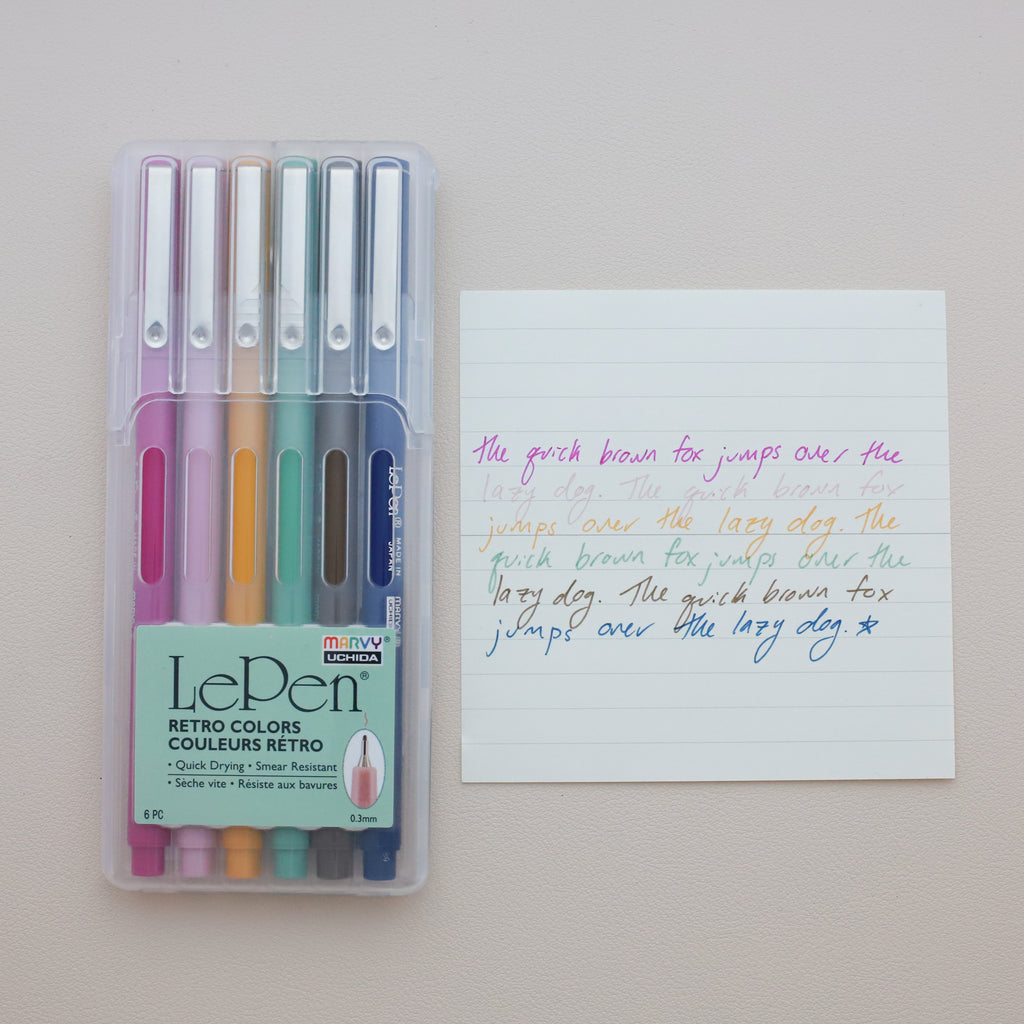 LePen® MADE IN JAPAN
MARVY®
UCHIDA
LePen®
RETRO COLORS
COULEURS RÉTRO
• Quick Drying • Smear Resistant
• Sèche vite • Résiste aux bavures
6 PC
0.3mm
the quick brown fox jumps over the
lazy dog. The quick brown fox
jumps over the lazy dog. The
quick brown fox jumps over the
lazy dog. The quick brown fox
jumps over the lazy dog.